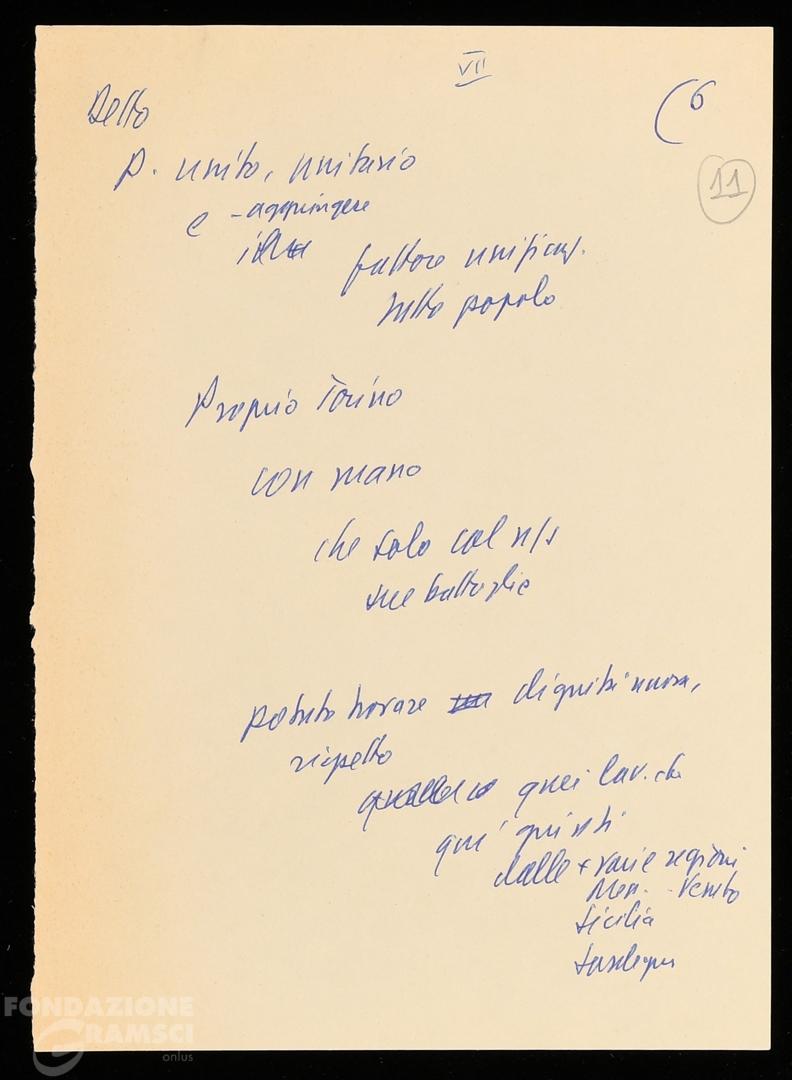 VII
(6
11
Detto
P. unito, unitario
e - aggiungere
fattore unificat.
tutto popolo
Proprio Torino
con mano
che solo col n/s
sue battaglie
potuto trovare dignità nuova,
rispetto
quei lav. che
qui giunti
dalle + varie regioni
Mer. - Veneto
Sicilia
Sardegna
FONDAZIONE
GRAMSCI
onlus